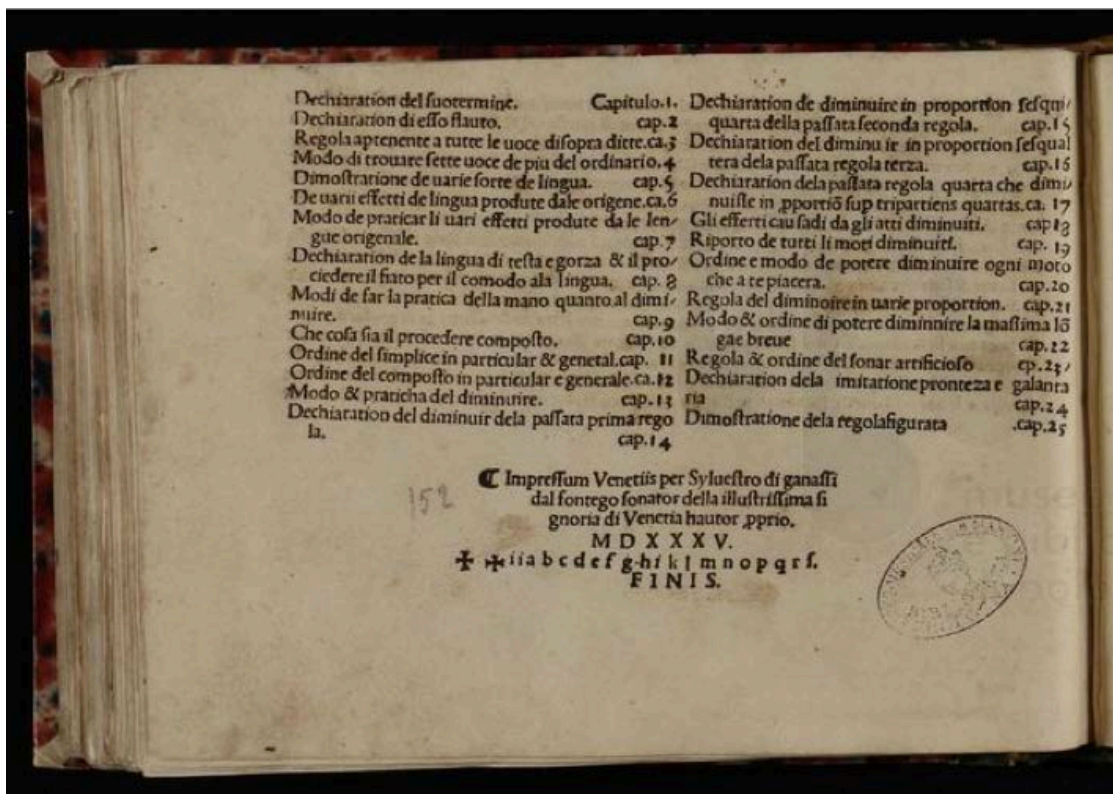 Dechiaration del suo termine. Capitulo.1.
Dechiaration di esso flauto. cap.2
Regola aptenente a tutte le uoce disopra ditte.ca.3
Modo di trouare sette uoce de piu del ordinario.4
Dimostratione de uarie sorte de lingua. cap.5
De uarii effetti de lingua produte dale origene.ca.6
Modo de praticar li uari effetti produte da le len/
gue origenale. cap.7
Dechiaration de la lingua di testa e gorza & il pro/
ciedere il fiato per il comodo ala lingua. cap.8
Modi de far la pratica della mano quanto al dimi/
nuire. cap.9
Che cosa sia il procedere composto. cap.10
Ordine del simplice in particular & genetal.cap. 11
Ordine del composto in particular e generale.ca.12
Modo & praticha del diminuire. cap.13
Dechiaration del diminuir dela passata prima rego
la. cap.14
Dechiaration de diminuire in proportion sesqui/
quarta della passata seconda regola. cap.15
Dechiaration del diminu ir in proportion sesqual
tera dela passata regola terza. cap.16
Dechiaration dela passata regola quarta che dimi/
nuisse in ꝓportiõ sup tripartiens quartas.ca. 17
Gli efferti cau sadi da gli atti diminuiti. cap18
Riporto de tutti li moti diminuiti. cap. 19
Ordine e modo de potere diminuire ogni moto
che a te piacera. cap.20
Regola del diminoire in uarie proportion. cap.21
Modo & ordine di potere diminnire la massima lõ
gae breue cap.22
Regola & ordine del sonar artificioso cp.23/
Dechiaration dela imitatione pronteza e galanta
ria cap.24
Dimostratione dela regolafigurata .cap.25
¶ Impressum Venetiis per Syluestro di ganassi
dal fontego sonator della illustrissima si
gnoria di Venetia hautor ꝓprio.
152
M D X X X V.
✠ ✠ii a b c d e f g h i k l m n o p q r s.
F I N I S.